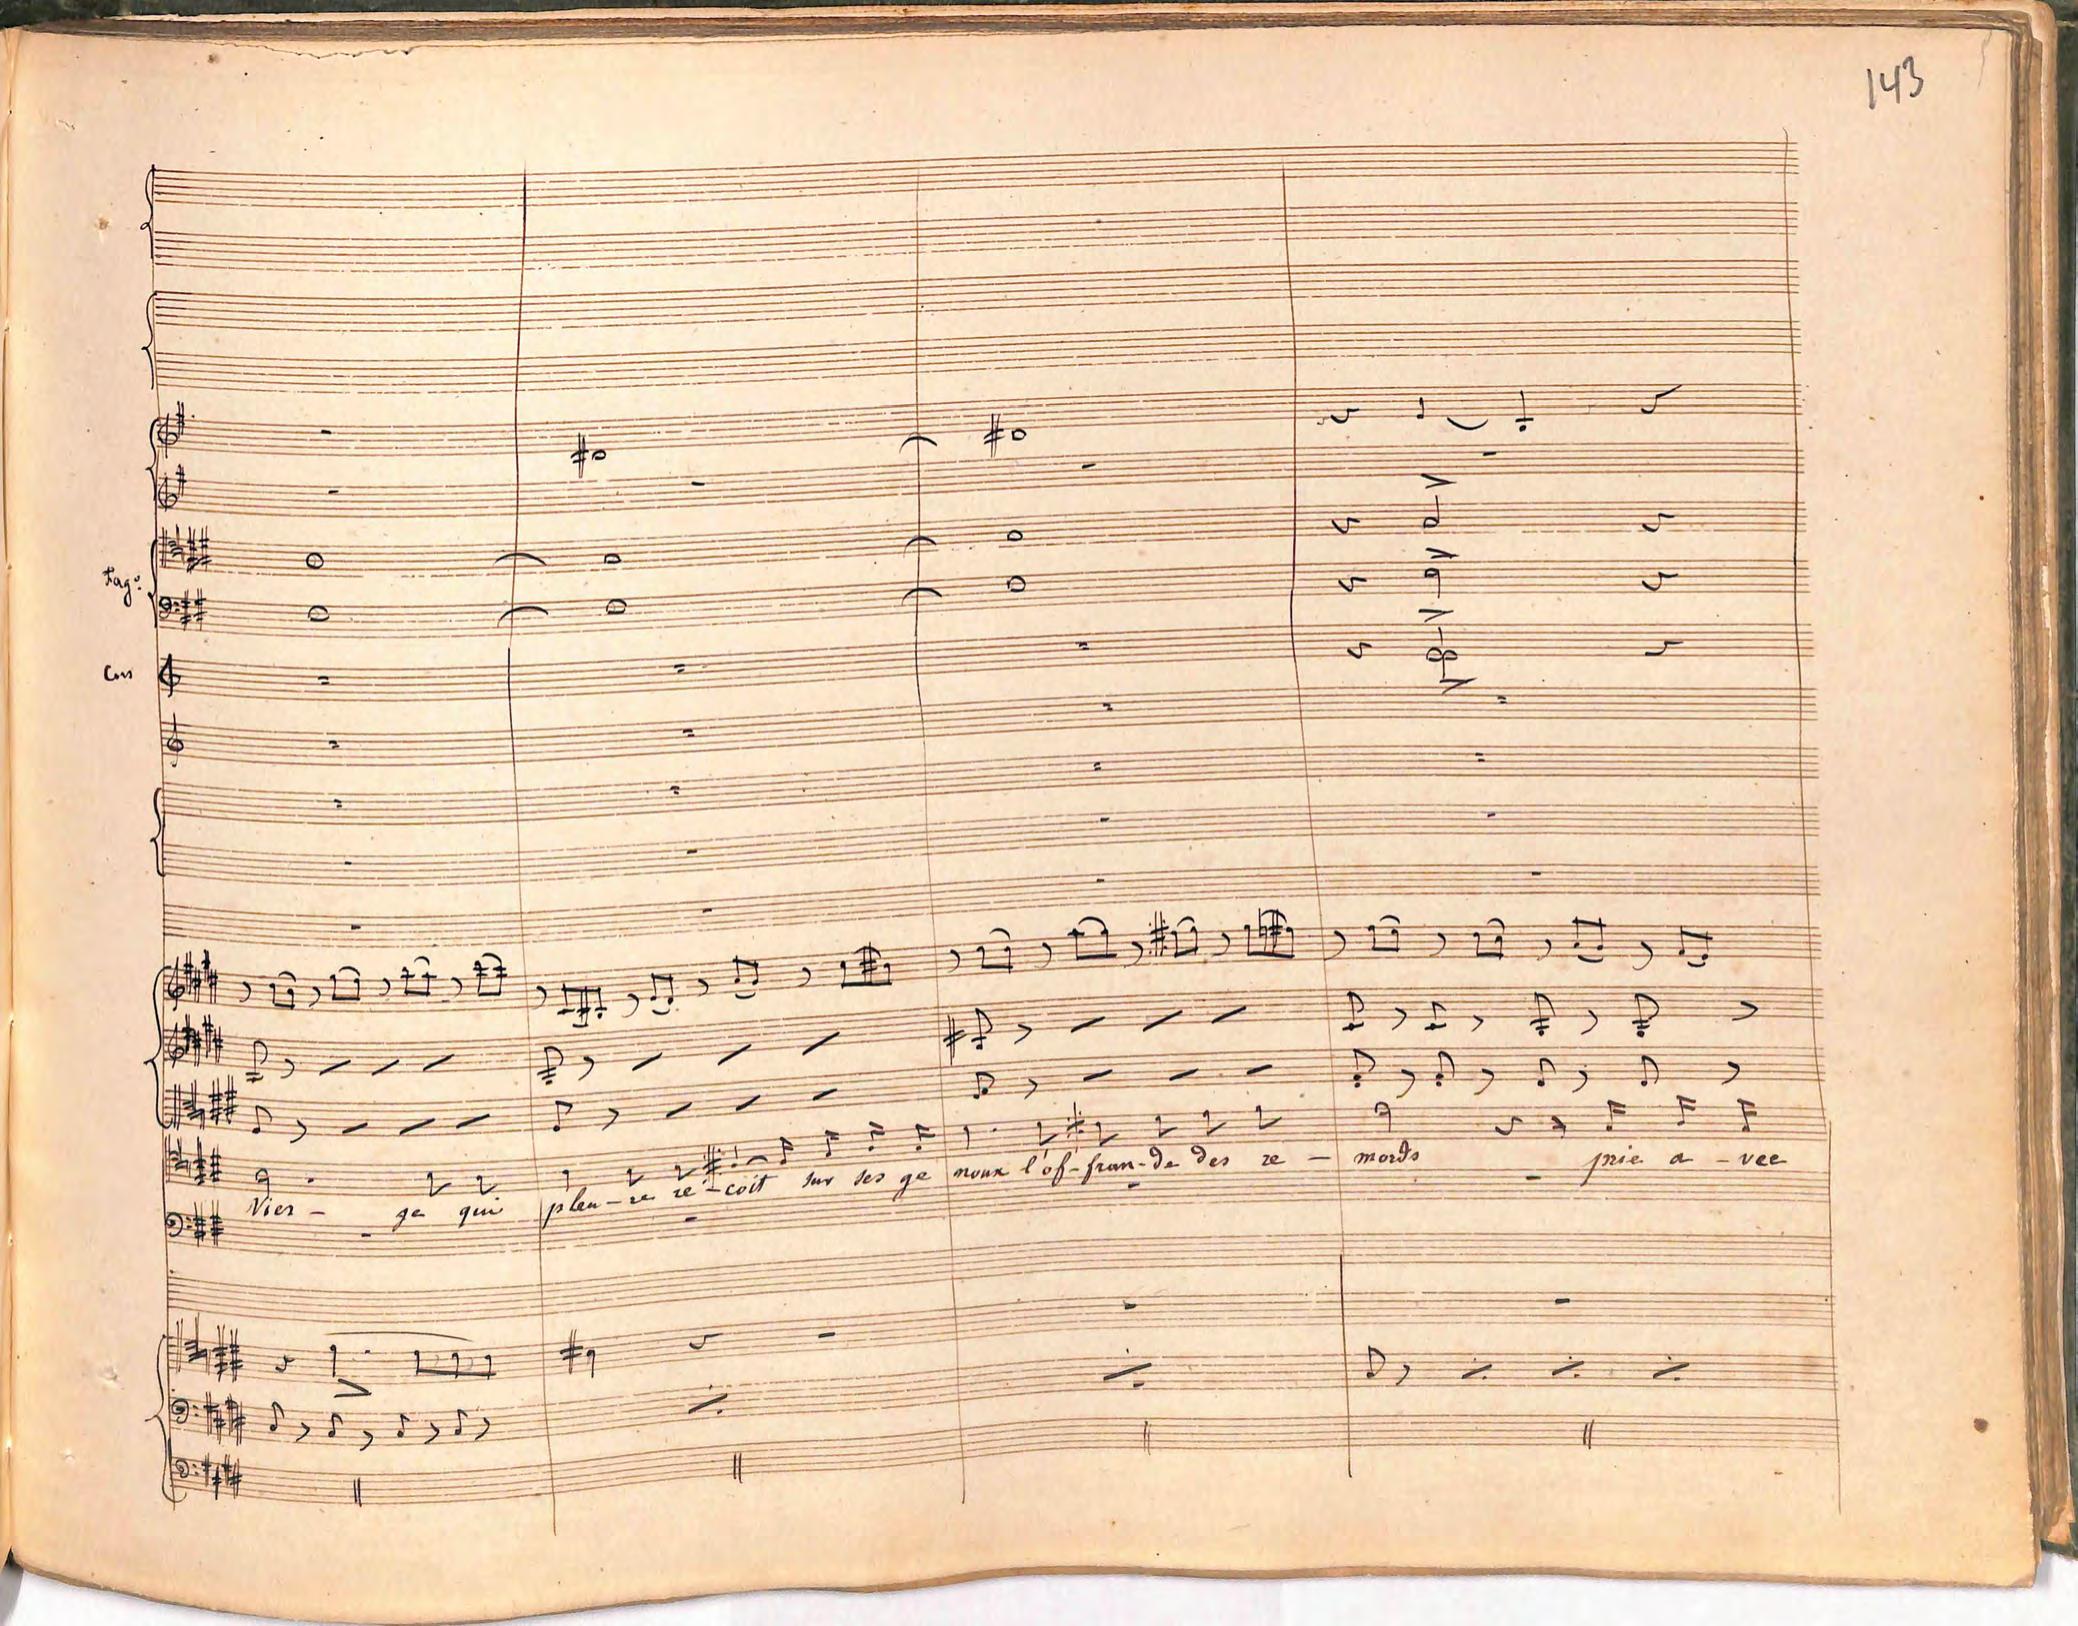 143
Fag°:
Cors
Vier - ge qui pleu - re re - çoit sur ses ge noux l'of - fran - de des re - mords prie a - vec